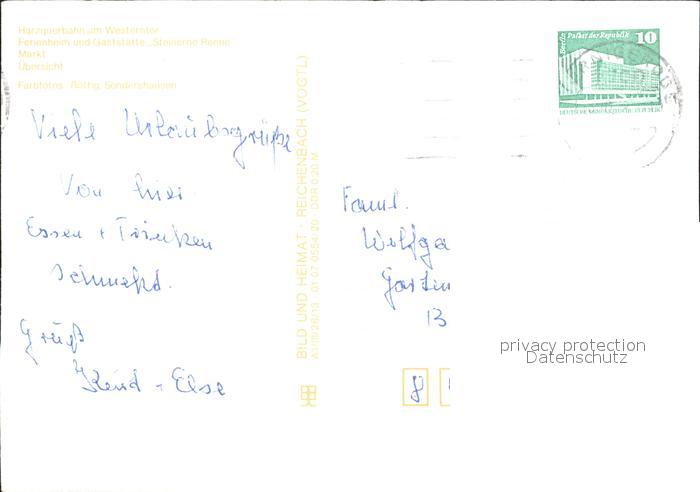 Harzquerbahn am Westerntor
Ferienheim und Gaststätte „Steinerne Renne"
Markt
Übersicht
Farbfotos: Röttig, Sondershausen
Viele Urlaubsgrüße
Von hier.
Essen + Trinken
schmeckt.
Gruß
Else
BILD UND HEIMAT · REICHENBACH (VOGTL)
A1/III/26/13 01 07 0554/20 DDR 0,20 M
Berlin, Palast der Republik
10
Faml.
Wolfga
Garten
13
8
privacy protection
Datenschutz